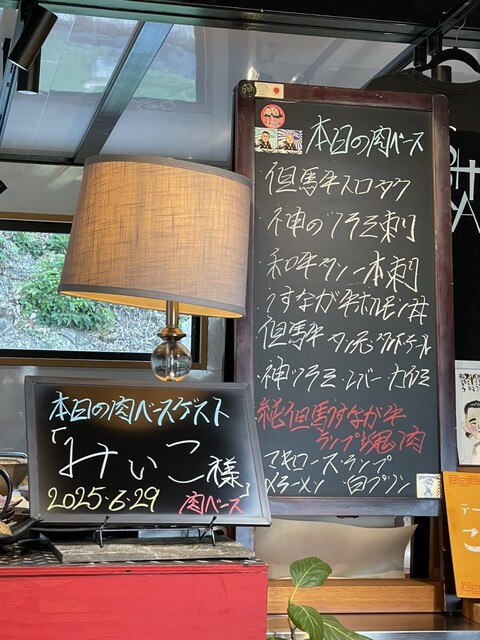 本日の肉ベース
但馬牛スロタク
神のツラミ刺
和牛タン一本刺
うすなが牛ホルモン丼
但馬牛
神ツラミ・レバー・カイノミ
純但馬うすなが牛
ランプすき焼肉
マキロース・ランプ
〆ラーメン 白プリン
本日の肉ベースゲスト
「みぃこ様」
2025・6・29 肉ベース
テー